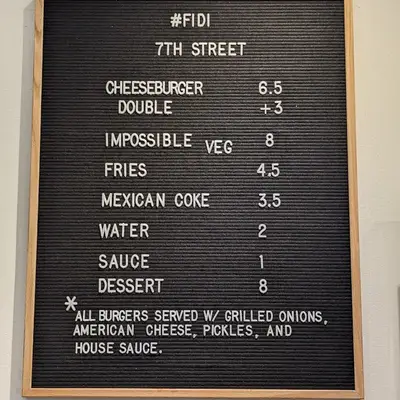 #FIDI
7TH STREET
CHEESEBURGER 6.5
DOUBLE +3
IMPOSSIBLE VEG 8
FRIES 4.5
MEXICAN COKE 3.5
WATER 2
SAUCE 1
DESSERT 8
*ALL BURGERS SERVED W/ GRILLED ONIONS,
AMERICAN CHEESE, PICKLES, AND
HOUSE SAUCE.